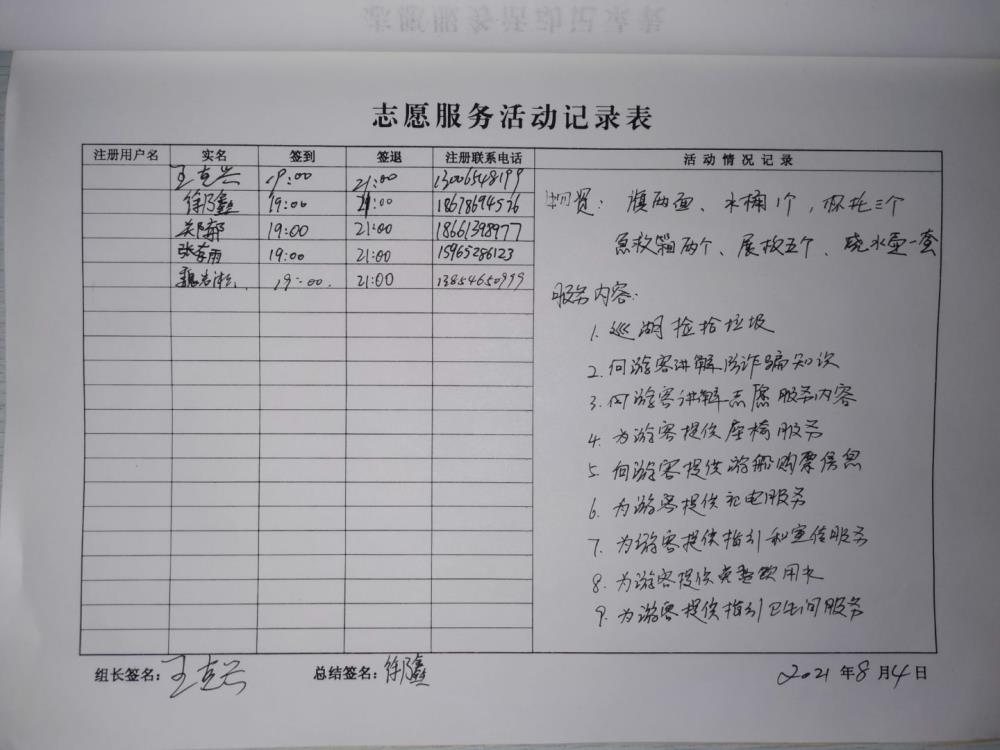 志愿服务活动记录表
注册用户名 实名 签到 签退 注册联系电话 活动情况记录
王克兴 19:00 21:00 13006548199
徐乃鑫 19:00 21:00 18678694526
19:00 21:00 18661398977
张春雨 19:00 21:00 15965286123
魏 19:00 21:00 13854650999
物资：旗两面、水桶1个，杯托三个
急救箱两个、展板五个、烧水壶一套
服务内容：
1. 巡湖捡拾垃圾
2. 向游客讲解防诈骗知识
3. 向游客讲解志愿服务内容
4. 为游客提供座椅服务
5. 向游客提供游船购票信息
6. 为游客提供充电服务
7. 为游客提供指引和宣传服务
8. 为游客提供免费饮用水
9. 为游客提供指引卫生间服务
组长签名：王克兴 总结签名：徐乃鑫 2021年8月4日